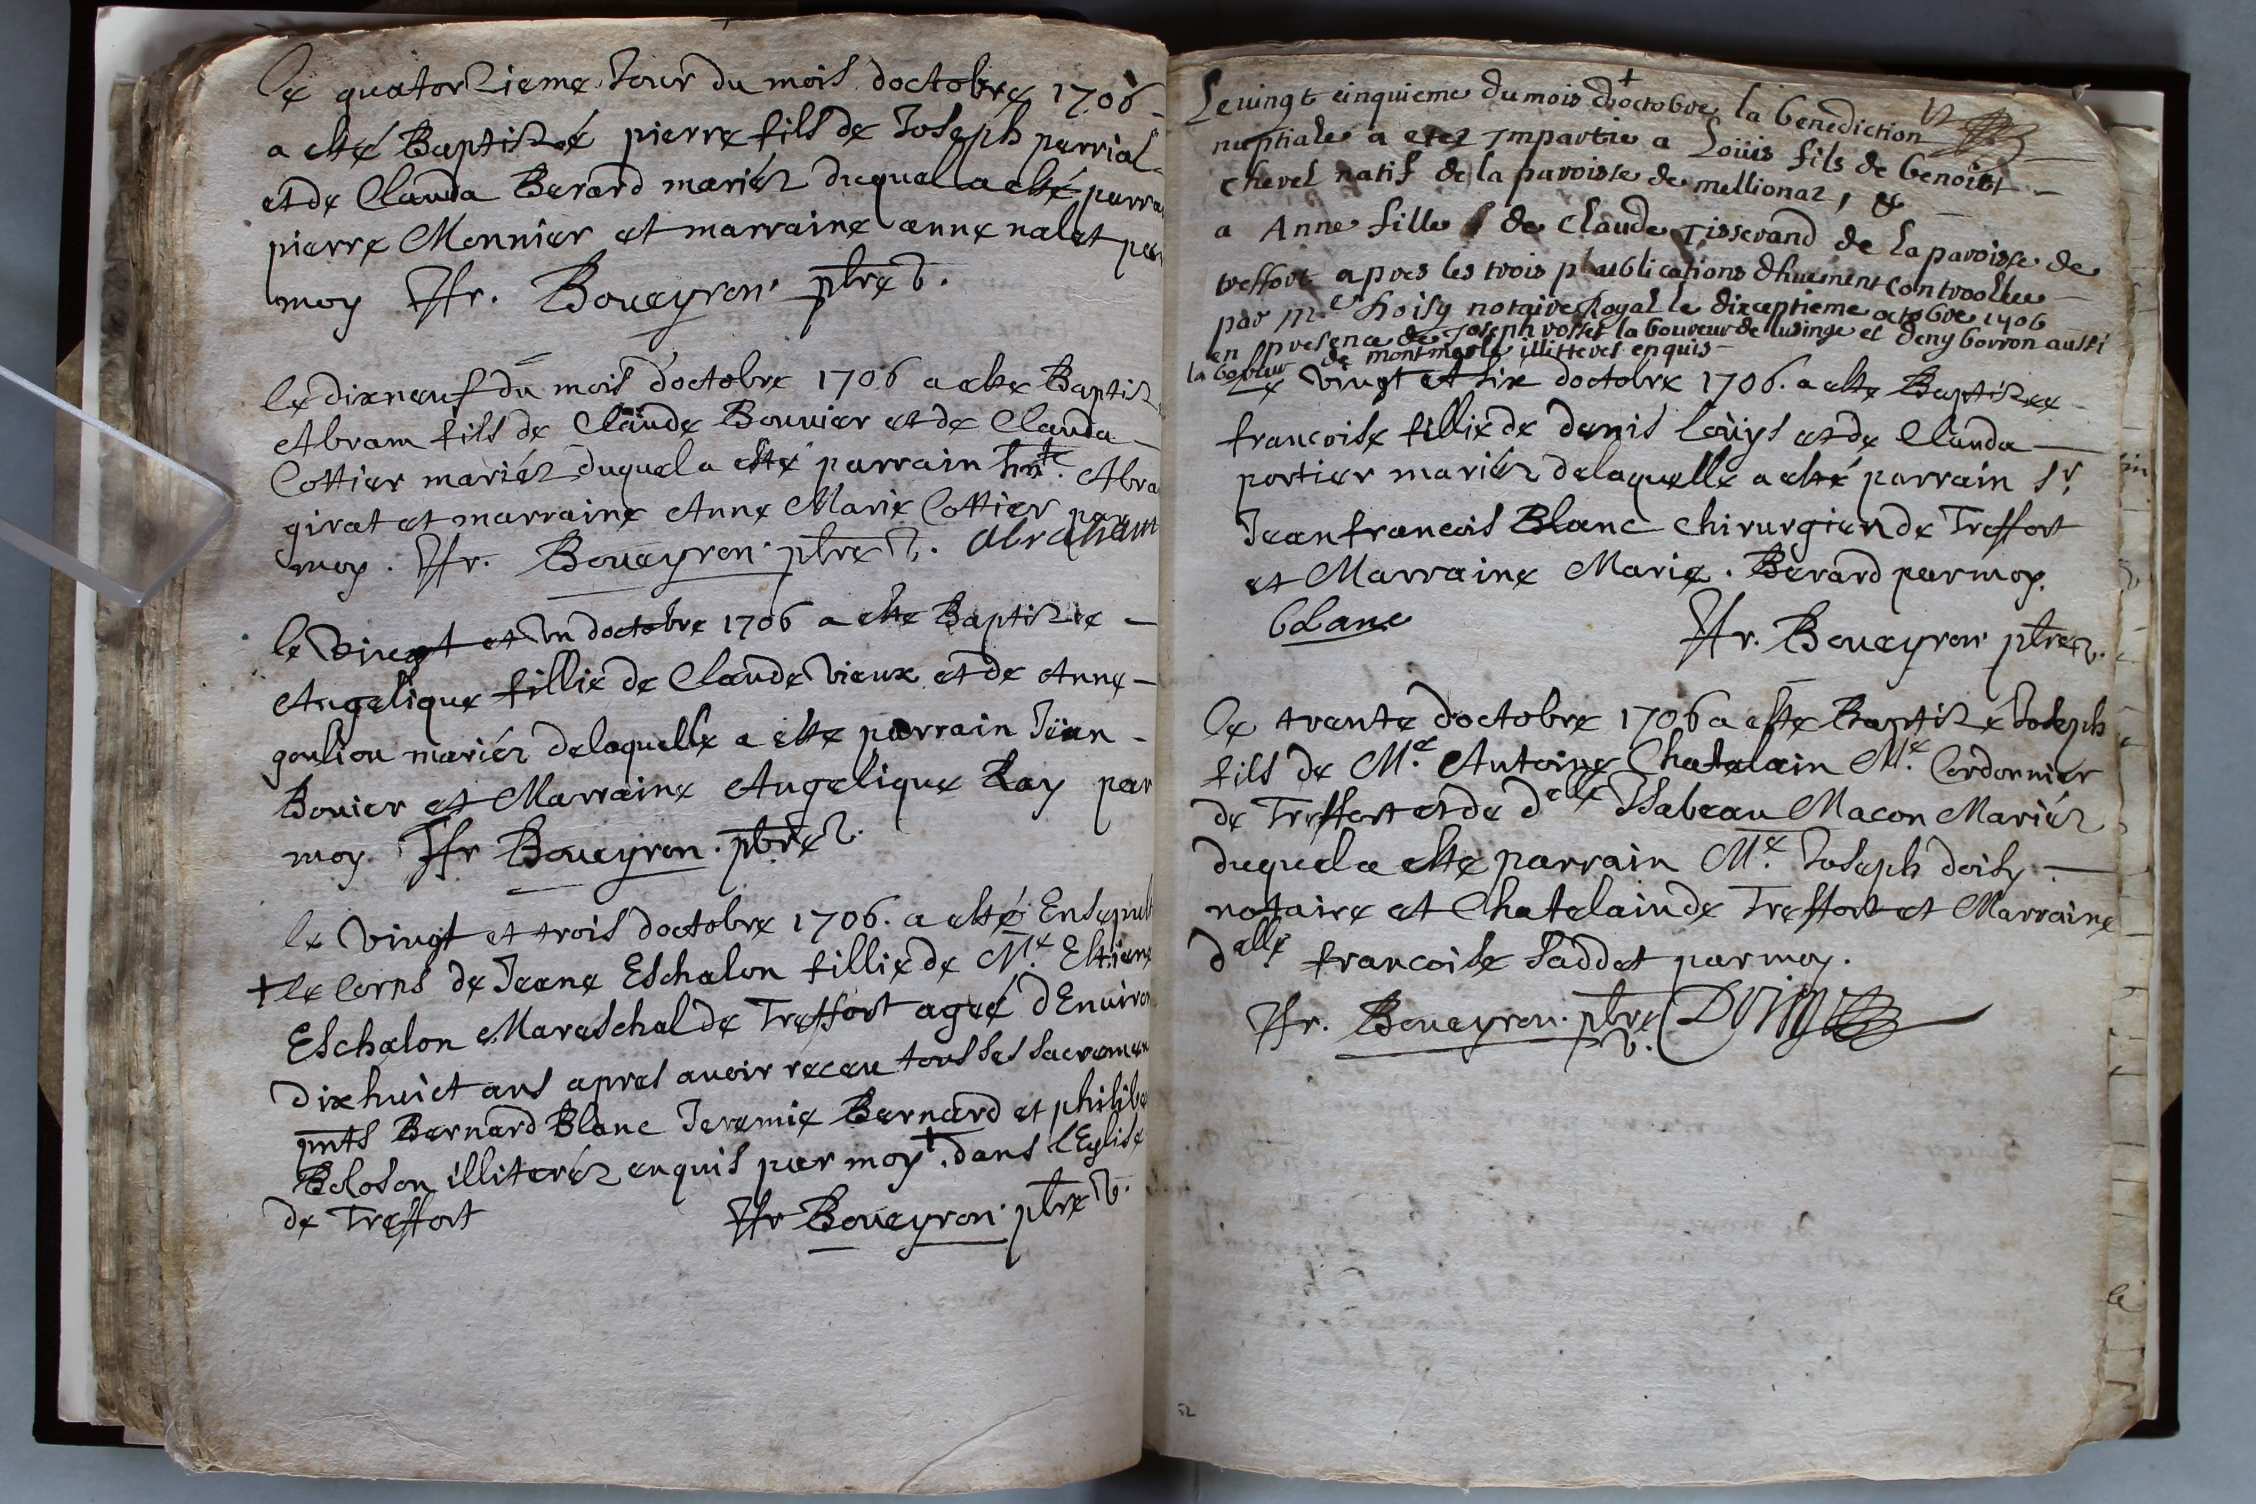 Le quatorzieme Jour du mois doctobre 1706
a esté Baptizé pierre fils de Joseph perrial
et de Clauda Berard mariéz duquel a esté parra
pierre Monnier et marraine anne nalet par
moy Fr. Boueyron ptre V.
le dixneuf du mois d'octobre 1706 a este Baptiz
Abram fils de Claude Bouuier et de Clauda
Cottier mariéz duquel a esté parrain hnte. Abra
girat et marraine Anne Marie Cottier par
moy. Fr. Boueyron ptre V. abraham
le Vingt et Vn doctobre 1706 a este Baptizee
Angelique fillie de Claude Vieux et de Anne
goulion mariéz delaquelle a este parrain Jean
Bouier et Marraine Angelique Ray par
moy. Fr Boueyron. ptre V.
le Vingt et trois doctobre 1706. a esté Ensepult
+ le Corps de Jeane Eschalon fillie de Me. Estiene
Eschalon Mareschal de Treffort ageé d'Enuiron
dixhuict ans apres auoir receu tous ses sacremen
pnts Bernard Blanc Jeremie Bernard et philibe
Boloson illiteréz enquis par moy +. dans l'Eglise
de Treffort Fr Boueyron ptre V.
Le uingt einquieme du mois d'octobre + la benediction
nuptiale a etez Impartie a Loüis fils de benoist
Chevel natif de la paroisse de mellionaz, &
a Anne fille de Claude Tisserand de la paroisse de
treffort apres les trois publications dhuement Controollee
par Me doisy notaire Royal le dixceptieme octobre 1706
en presence de Joseph rosset laboureur de lusinge et deny borron aussi
laboreur de montmerle illitteres enquis
Le Vingt et six doctobre 1706. a este Baptizee
francoise fillie de denis Loüys et de Clauda
portier mariéz delaquelle a esté parrain Sr.
Jean francois Blanc Chirurgien de Treffort
et Marraine Marie. Berard par moy.
bLanc Fr. Boueyron ptre V.
Le trente d'octobre 1706 a este Baptize Joseph
fils de Me. Antoine Chatelain Me. Cordonnier
de Treffort et de delle Isabeau Macon Mariéz
duquel a este parrain Me. Joseph doisy
notaire et Chatelain de Treffort et Marraine
delle. francoise Saddet par moy.
Fr. Boueyron. ptre V. Doisy
52